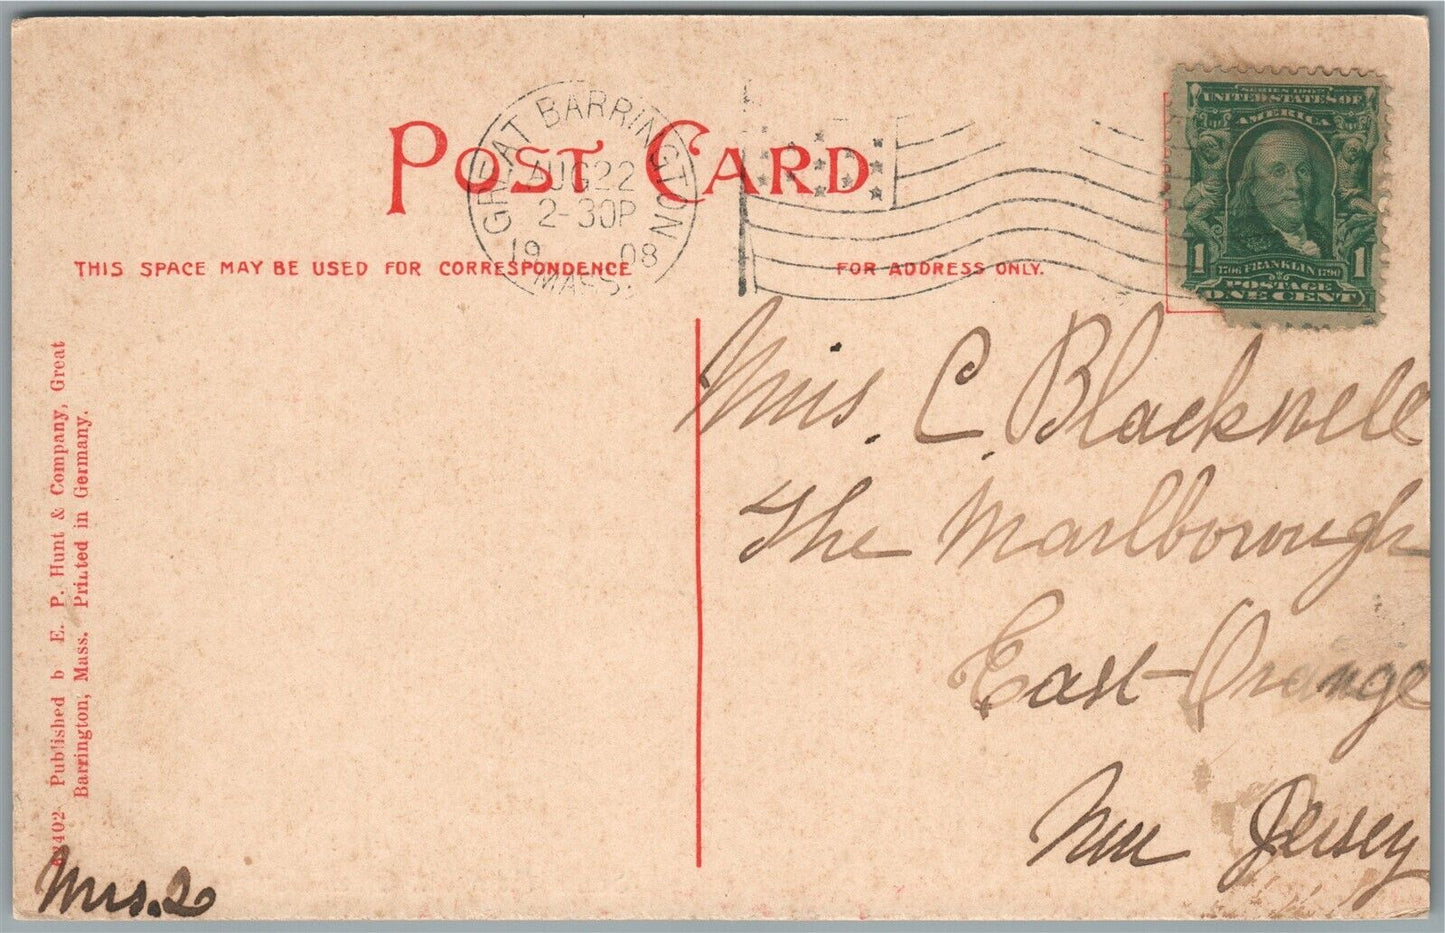 POST CARD
GREAT BARRINGTON
AUG 22
2-30P
19 08
MASS.
SERIES 1902
UNITED STATES OF
AMERICA
1 1
1706 FRANKLIN 1790
POSTAGE
ONE CENT
THIS SPACE MAY BE USED FOR CORRESPONDENCE
FOR ADDRESS ONLY.
Miss. C. Blackwell
The Marlborough
East Orange
New Jersey
Published b E. P. Hunt & Company, Great
Barrington, Mass. Printed in Germany.
Mrs. 2